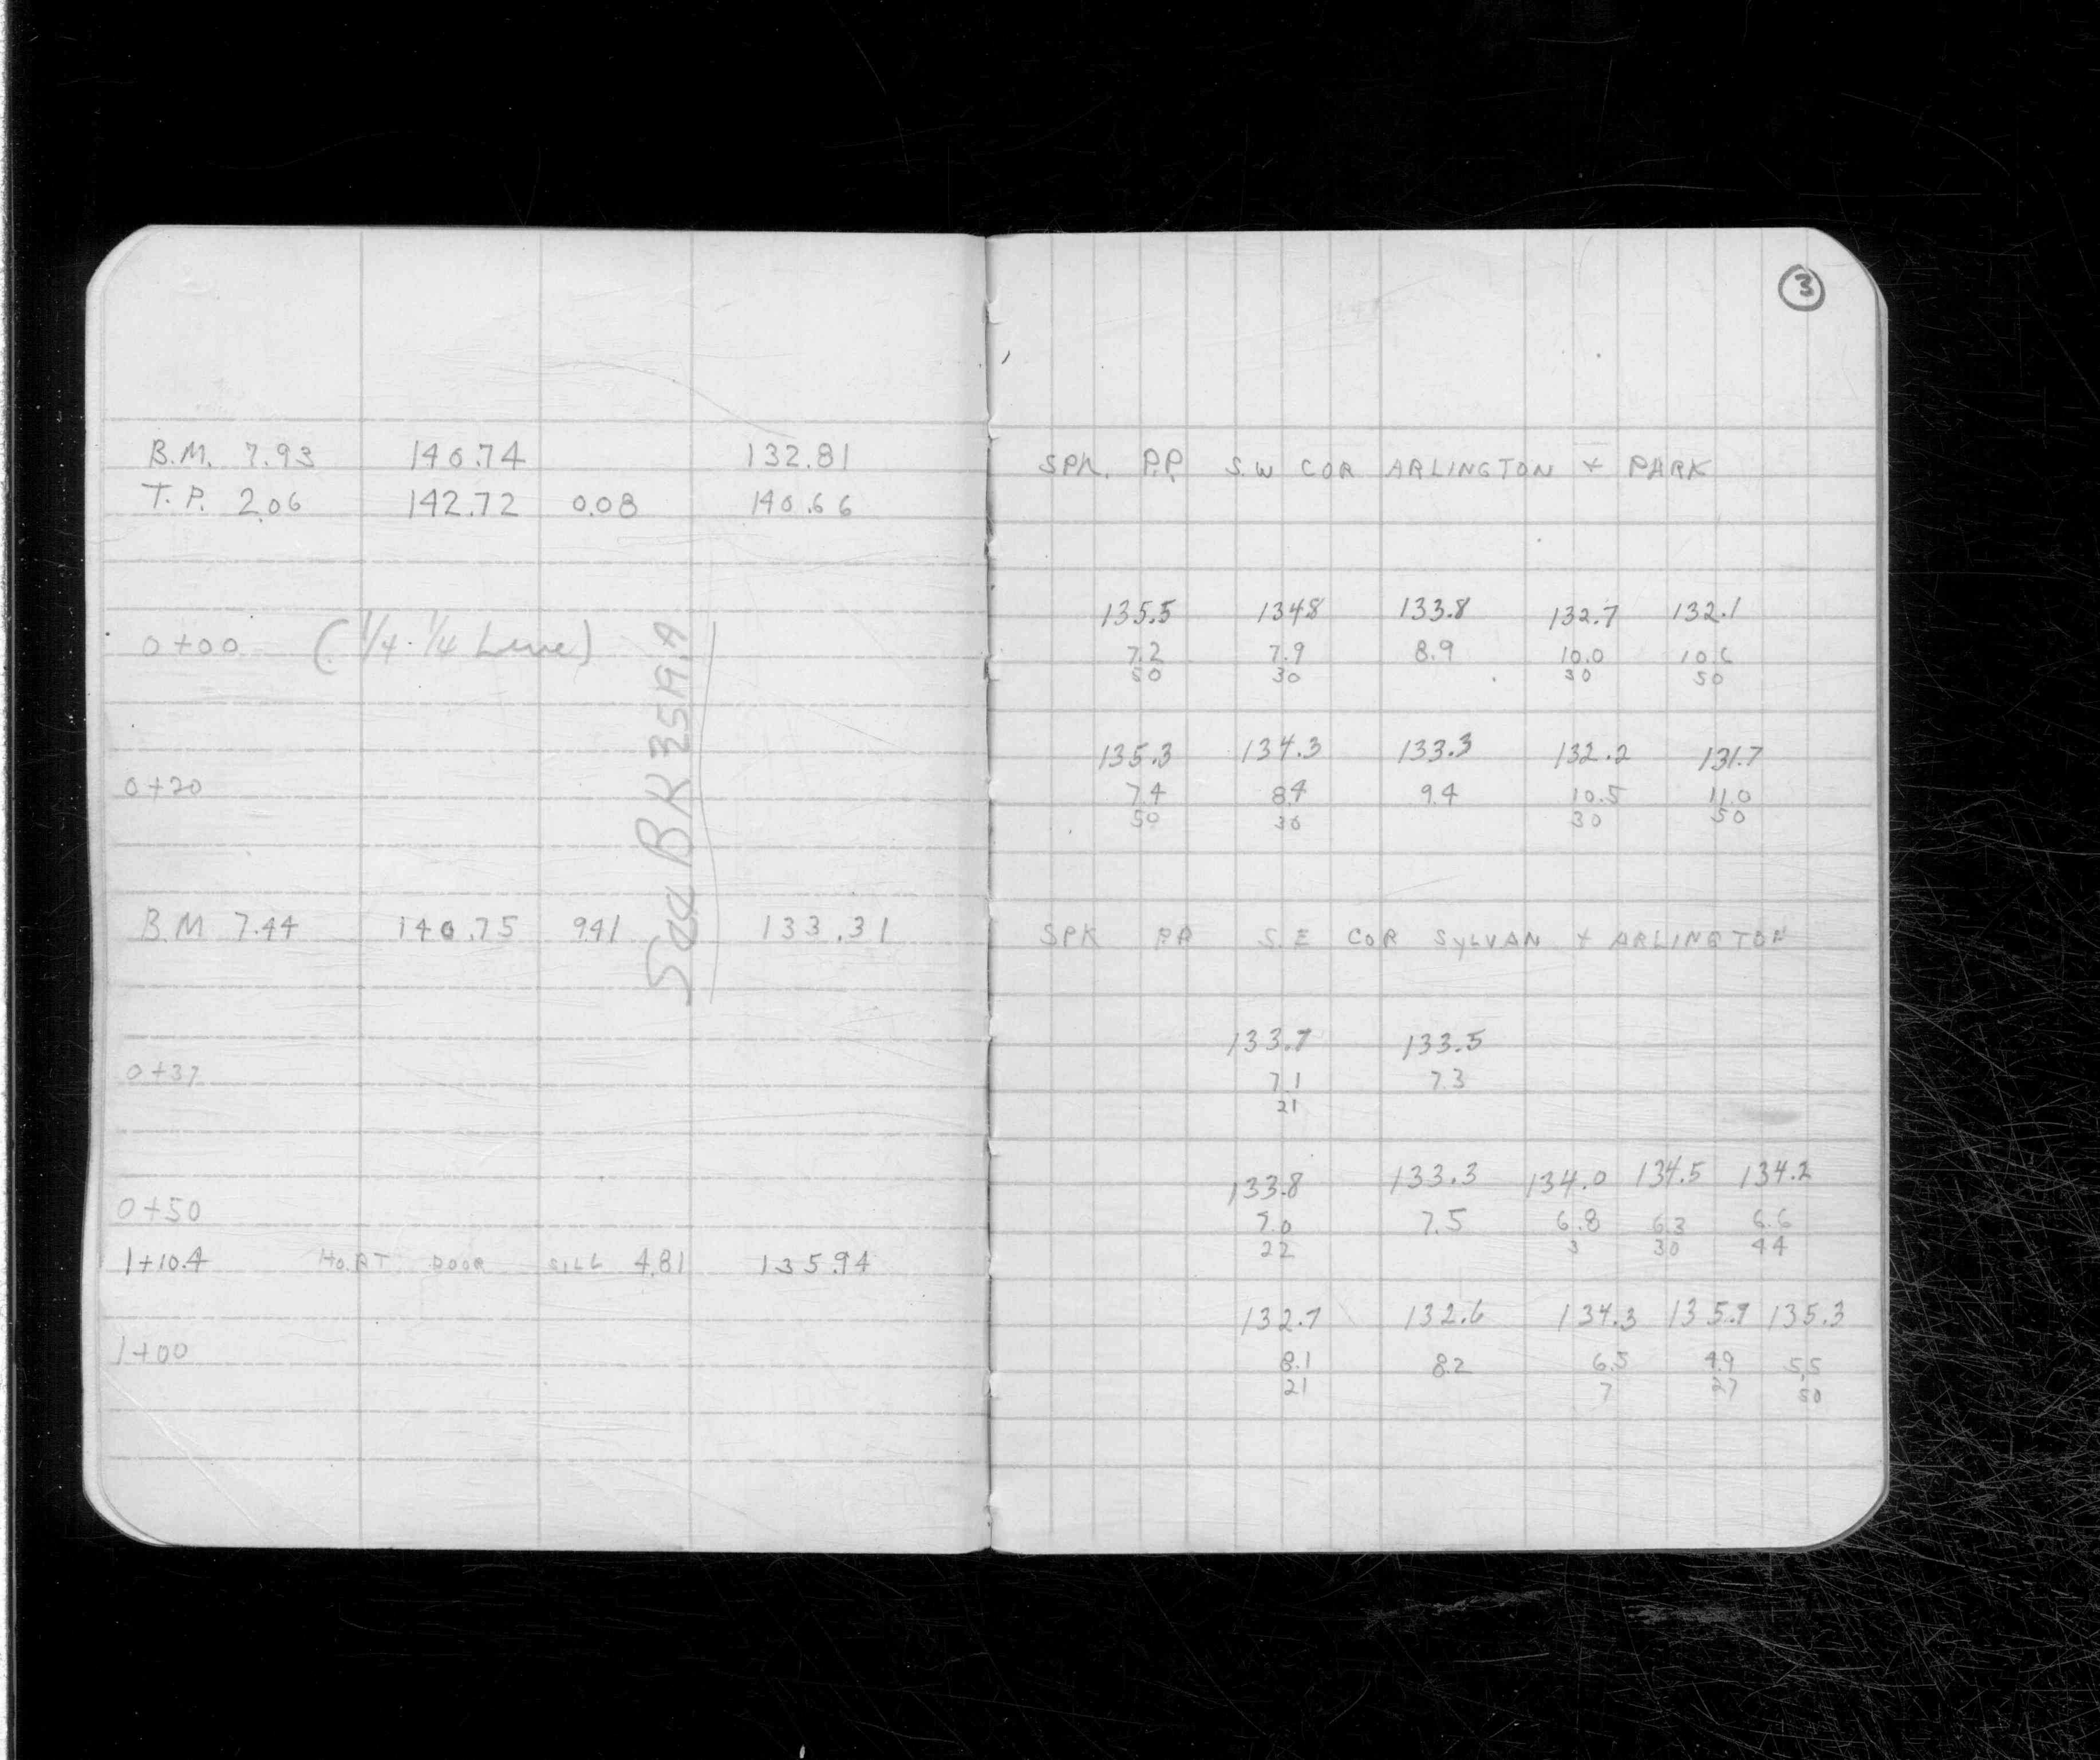 B.M. 7.93 140.74 132.81
T.P. 2.06 142.72 0.08 140.66
0+00 (1/4-1/4 Line)
0+20
See BK 3519.A
B.M 7.44 140.75 9.41 133.31
0+37
0+50
1+10.4 DOOR SILL 4.81 135.94
1+00
3
SPK. P.P. S.W COR ARLINGTON + PARK
135.5 134.8 133.8 132.7 132.1
7.2 7.9 8.9 10.0 10.6
50 30 30 50
135.3 134.3 133.3 132.2 131.7
7.4 8.4 9.4 10.5 11.0
50 30 30 50
SPK P.P. S.E COR SYLVAN + ARLINGTON
133.7 133.5
7.1 7.3
21
133.8 133.3 134.0 134.5 134.2
7.0 7.5 6.8 6.3 6.6
22 3 30 44
132.7 132.6 134.3 135.9 135.3
8.1 8.2 6.5 4.9 5.5
21 7 27 50